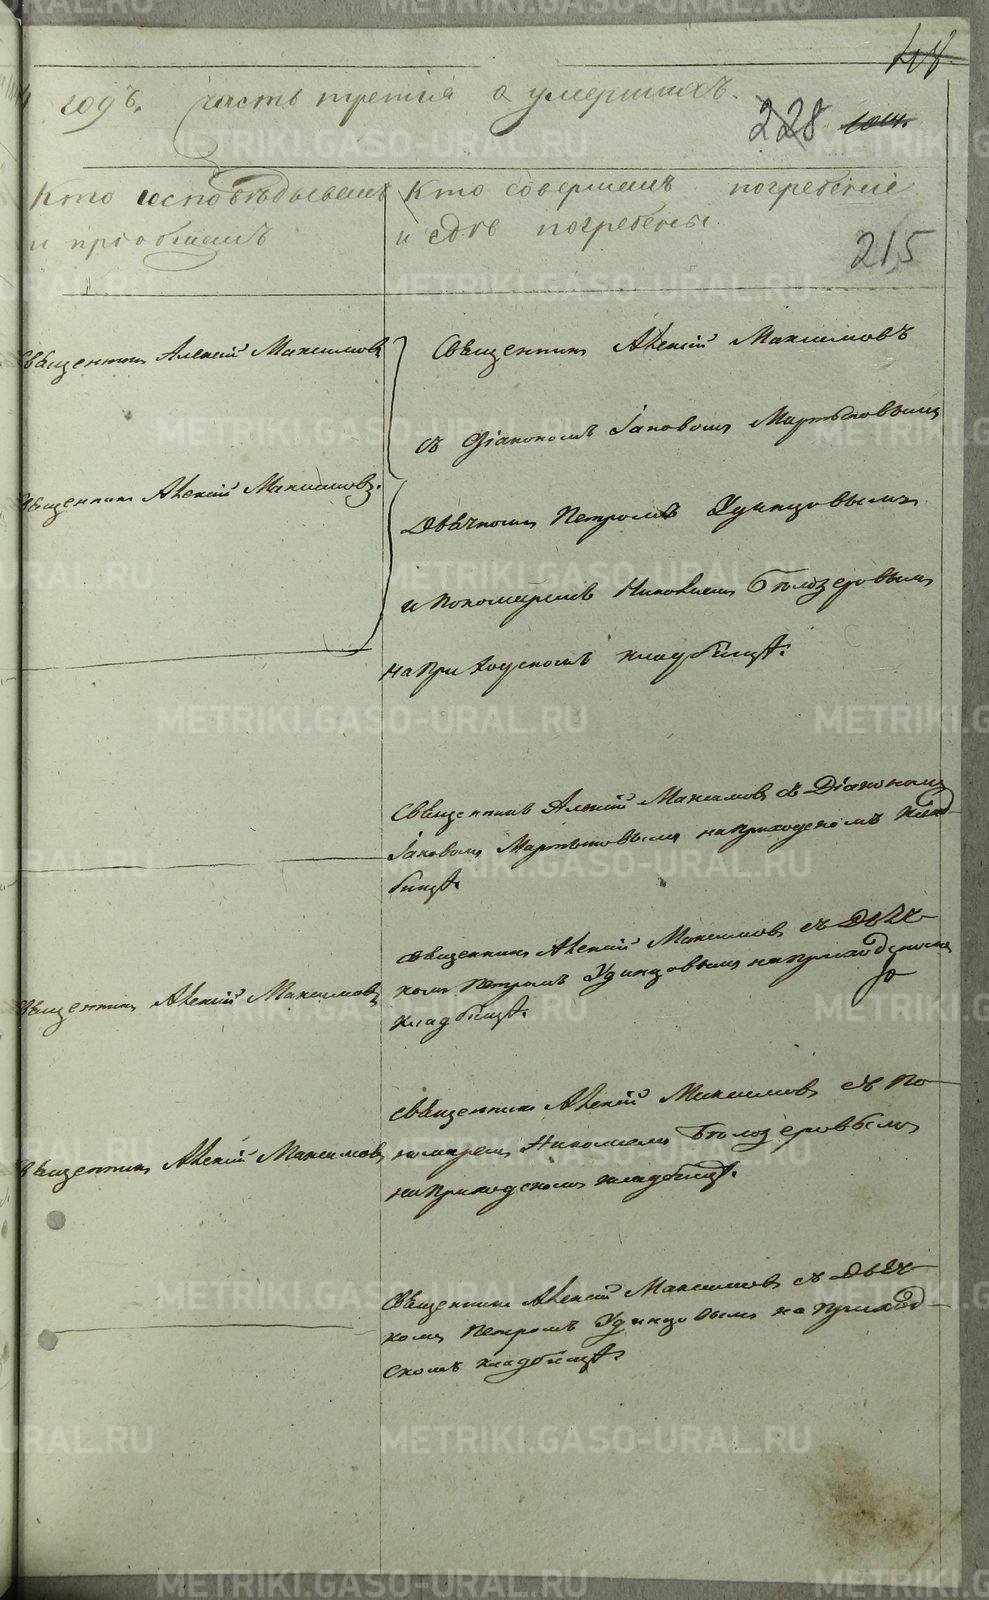 годъ. часть третiя о умершихъ.
228
Кто исповѣдывалъ
и прiобщалъ
Кто совершалъ погребенiе
и гдѣ погребены.
215
Священникъ Алексiй Максимовъ
Священникъ Алексiй Максимовъ
съ Дiакономъ Iаковомъ Мартыновымъ
Священникъ Алексiй Максимовъ.
Дьячкомъ Петромъ Удинцовымъ
и Пономаремъ Николаемъ Бѣлозеровымъ
на приходскомъ кладбищѣ.
Священникъ Алексiй Максимовъ съ Дiакономъ
Iаковомъ Мартыновымъ на приходскомъ клад
бищѣ.
Священникъ Алексiй Максимовъ съ Дьяч
комъ Петромъ Удинцовымъ на приходскомъ
кладбищѣ.
Священникъ Алексiй Максимовъ
Священникъ Алексiй Максимовъ съ По
номаремъ Николаемъ Бѣлозеровымъ
на приходскомъ кладбищѣ.
Священникъ Алексiй Максимовъ
Священникъ Алексiй Максимовъ съ Дьяч
комъ Петромъ Удинцовымъ на приход
скомъ кладбищѣ.
METRIKI.GASO-URAL.RU